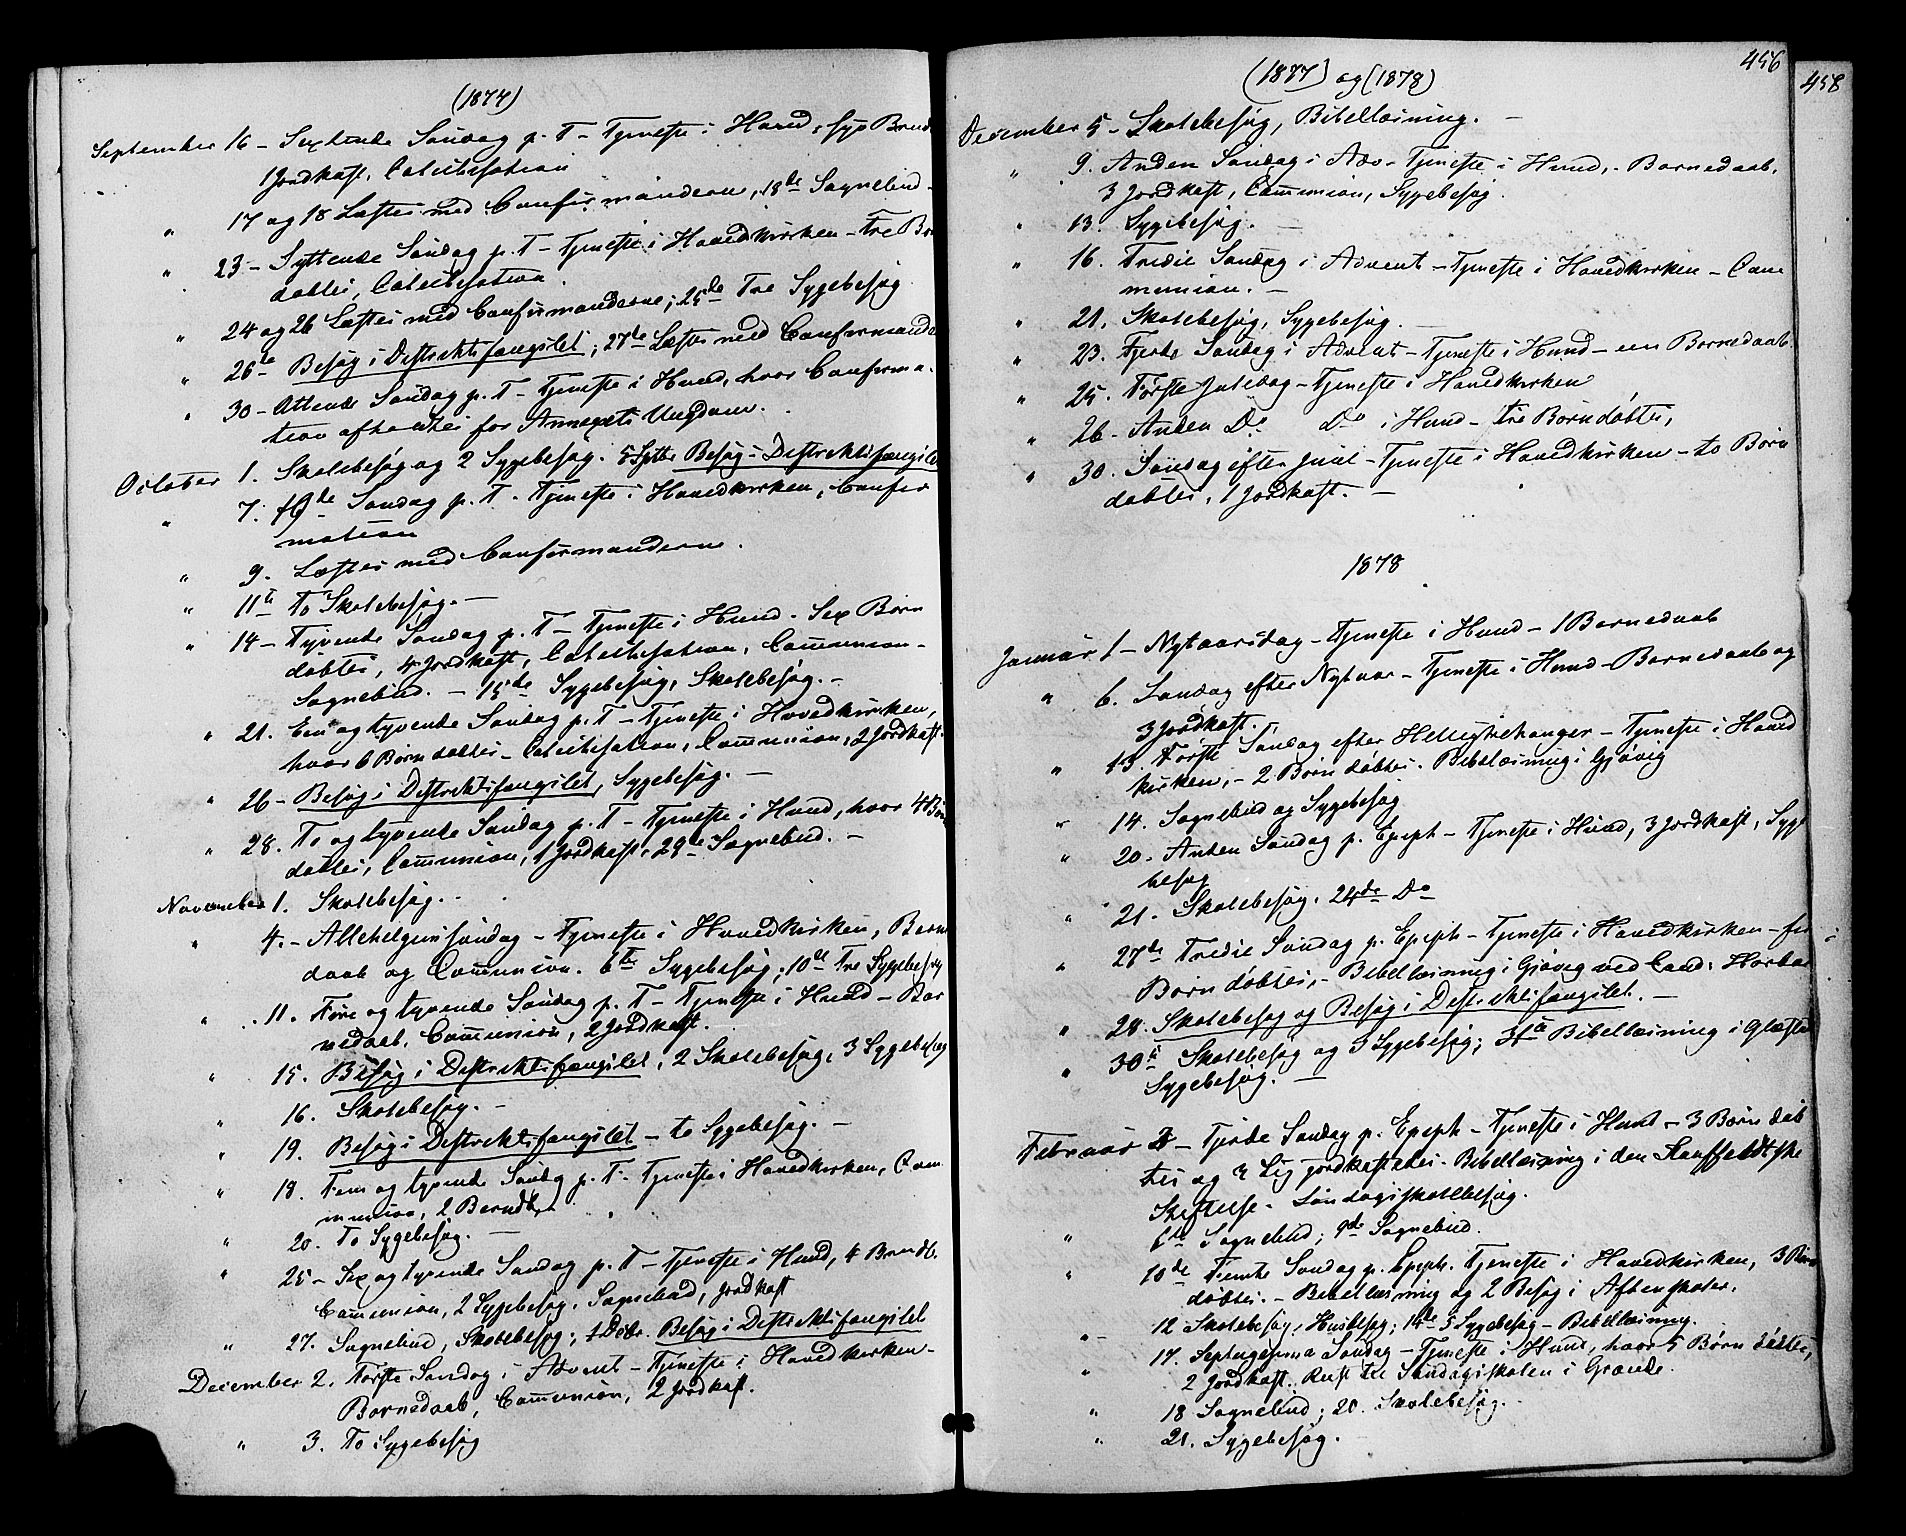 (1877)
September 16 – Sextende Søndag p. T – Tjeneste i Hund, syv Børnd.
1 Jordkast, Catechisation
" 17 og 18 Læstes med Confirmanderne, 18de Sognebud –
" 23 – Syttende Søndag p. T – Tjeneste i Hovedkirken – tre Børn
døbtes, Catechisation.
" 24 og 26 Læstes med Confirmanderne; 25de Tre Sygebesøg
" 26de Besøg i Distriktsfængslet; 27de Læstes med Confirmande
" 30 – Attende Søndag p. T – Tjeneste i Hund, hvor Confirma-
tion afholdtes for Annexets Ungdom.
October 1. Skolebesøg og 2 Sygebesøg. Besøg i Distriktsfængslet
" 7. 19de Søndag p. T. Tjeneste i Hovedkirken, Confir
mation
" 9. Læstes med Confirmanderne.
" 11te To Skolebesøg. –
" 14 – Tyvende Søndag p. T – Tjeneste i Hund. Sex Børn
døbtes, 4 Jordkast, Catechisation, Communion –
Sognebud. – 15de Sygebesøg, Skolebesøg. –
" 21. Een og tyvende Søndag p. T – Tjeneste i Hovedkirken,
hvor 6 Børn døbtes – Catechisation, Communion, 2 Jordkast.
" 26 – Besøg i Distriktsfængslet, Sygebesøg. –
" 28. To og tyvende Søndag p. T – Tjeneste i Hund, hvor 4 Børn
døbtes, Communion, 1 Jordkast. 29de Sognebud. –
November 1. Skolebesøg.
" 4. – Allehelgenssøndag – Tjeneste i Hovedkirken, Barne
daab og Communion. 6te Sygebesøg; 10de Tre Sygebesøg
" 11. Fire og tyvende Søndag p. T – Tjeneste i Hund – Bar
nedaab, Communion, 2 Jordkast.
" 15. Besøg i Distriktsfængslet, 2 Skolebesøg, 3 Sygebesøg
" 16. Skolebesøg. –
" 19. Besøg i Distriktsfængslet – to Sygebesøg. –
" 18. Fem og tyvende Søndag p. T. Tjeneste i Hovedkirken, Com
munion, 2 Barnedb.
" 20. To Sygebesøg. –
" 25 – Sex og tyvende Søndag p. T – Tjeneste i Hund, 4 Barnedb.
Communion, 2 Sygebesøg, Sognebud, Jordkast
" 27. Sognebud, Skolebesøg; Besøg i Distriktsfængslet
December 2. Første Søndag i Advent – Tjeneste i Hovedkirken –
Barnedaab, Communion, 2 Jordkast.
" 3. To Sygebesøg
456
458
(1877) og (1878)
December 5 – Skolebesøg, Bibellæsning. –
" 9. Anden Søndag i Adv – Tjeneste i Hund, – Barnedaab,
3 Jordkast, Communion, Sygebesøg.
" 13. Sygebesøg. –
" 16. Tredie Søndag i Advent – Tjeneste i Hovedkirken – Com
munion. –
" 21. Skolebesøg, Sygebesøg. –
" 23. Fjerde Søndag i Advent – Tjeneste i Hund – een Barnedaab
" 25. Første Juledag – Tjeneste i Hovedkirken
" 26. Anden Do Do i Hund – tre Børn døbtes,
" 30. Søndag efter Juul – Tjeneste i Hovedkirken – to Børn
døbtes, 1 Jordkast. –
1878
Januar 1 – Nytaarsdag – Tjeneste i Hund – 1 Barnedaab
" 6. Søndag efter Nytaar – Tjeneste i Hund – Barnedaab og
3 Jordkast.
" 13. Første Søndag efter Helligtrekonger – Tjeneste i Hoved
kirken, – 2 Børn døbtes. Bibellæsning i Gjøvig
" 14. Sognebud og Sygebesøg
" 20. Anden Søndag p. Epiph – Tjeneste i Hund, 3 Jordkast, Syge
besøg
" 21. Skolebesøg, 24de Do
" 27de Tredie Søndag p. Epiph – Tjeneste i Hovedkirken –
Børn døbtes, – Bibellæsning i Gjøvig ved Cand:
" 28. Skolebesøg og Besøg i Distriktsfængslet. –
" 30te Skolebesøg og 3 Sygebesøg; 31te Bibellæsning i
Sygebesøg. –
Februar 3 – Fjerde Søndag p. Epiph – Tjeneste i Hund – 3 Børn døb
tes og Lig jordkastedes. Bibellæsning i den Kauffeldtske
Stiftelse. Søndagsskolebesøg.
" 6te Sognebud; 9de Sognebud.
" 10de Femte Søndag p. Epiph. Tjeneste i Hovedkirken, 3 Børn
døbtes. – Bibellæsning og 2 Besøg i Aftenskoler.
" 12 Skolebesøg, Huusbesøg; 5 Sygebesøg – Bibellæsning.
" 17. Septuagesima Søndag – Tjeneste i Hund, hvor 5 Børn døbtes,
2 Jordkast. Reist til Søndagsskolen i
" 18 Sognebud; 20. Skolebesøg. –
" 21. Sygebesøg.